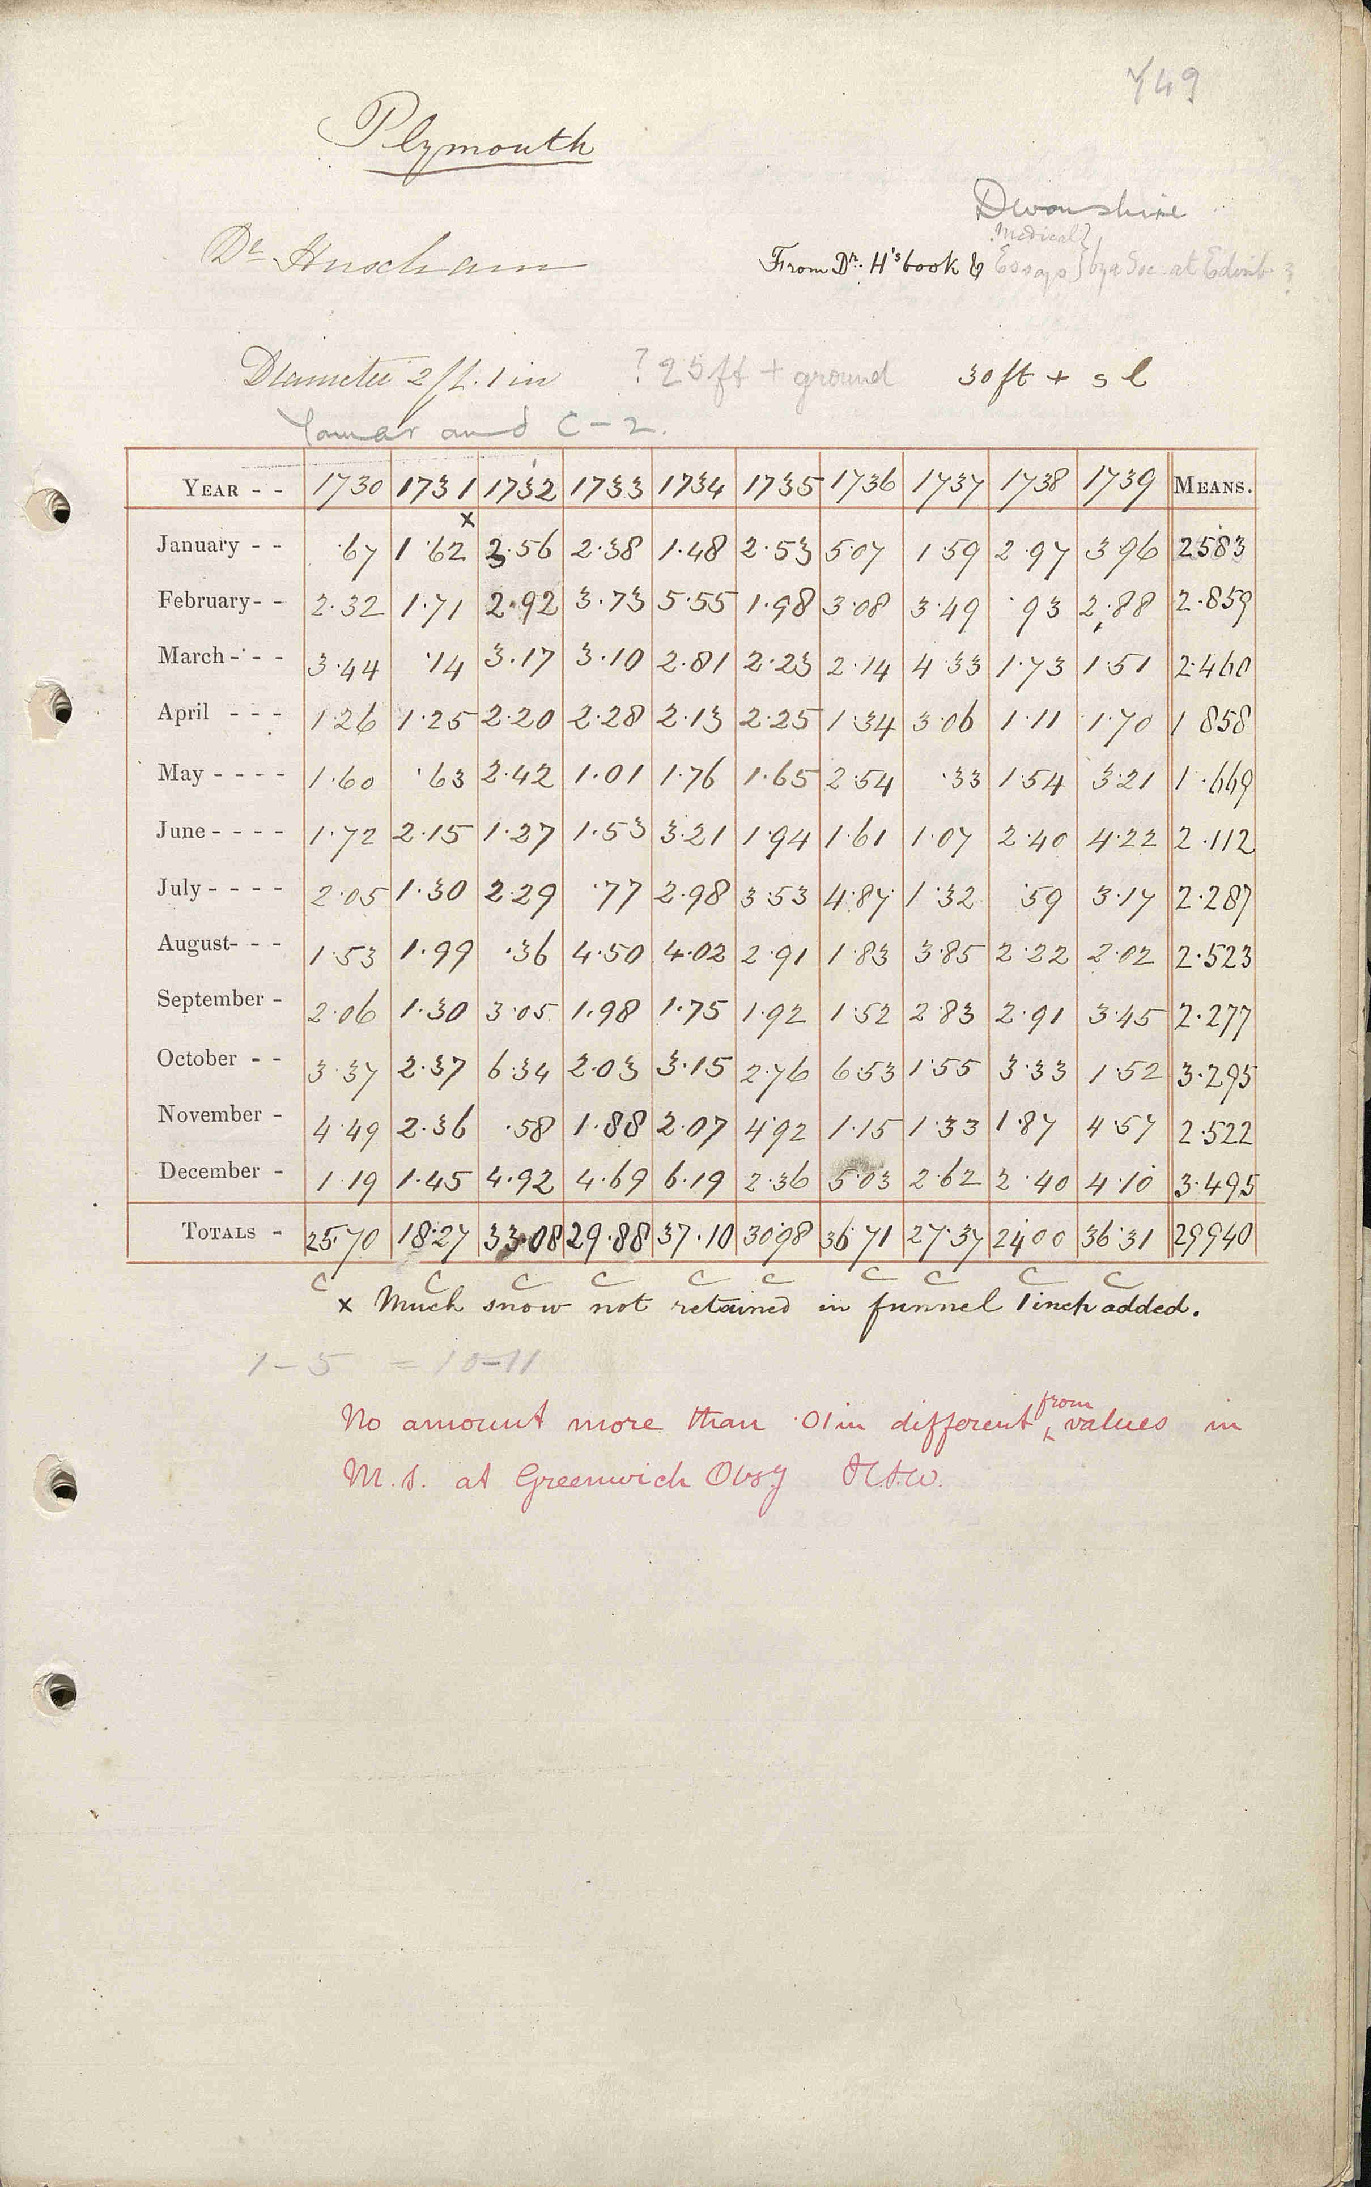 749
Plymouth
Devonshire
Dr Huxham
Medical
From Dr. H's book & Essays by a Soc. at Edinb
Diameter 2 ft. 1 in ? 25 ft + ground 30 ft + s l
Tamar and C-2.
YEAR - - 1730 1731 1732 1733 1734 1735 1736 1737 1738 1739 MEANS.
x
January - - ·67 1·62 3·56 2·38 1·48 2·53 5·07 1·59 2·97 3·96 2·583
February - - 2·32 1·71 2·92 3·73 5·55 1·98 3·08 3·49 ·93 2·88 2·859
March - - - 3·44 ·14 3·17 3·10 2·81 2·23 2·14 4·33 1·73 1·51 2·460
April - - - 1·26 1·25 2·20 2·28 2·13 2·25 1·34 3·06 1·11 1·70 1·858
May - - - - 1·60 ·63 2·42 1·01 1·76 1·65 2·54 ·33 1·54 3·21 1·669
June - - - - 1·72 2·15 1·27 1·53 3·21 1·94 1·61 1·07 2·40 4·22 2·112
July - - - - 2·05 1·30 2·29 ·77 2·98 3·53 4·87 1·32 ·59 3·17 2·287
August - - - 1·53 1·99 ·36 4·50 4·02 2·91 1·83 3·85 2·22 2·02 2·523
September - 2·06 1·30 3·05 1·98 1·75 1·92 1·52 2·83 2·91 3·45 2·277
October - - 3·37 2·37 6·34 2·03 3·15 2·76 6·53 1·55 3·33 1·52 3·295
November - 4·49 2·36 ·58 1·88 2·07 4·92 1·15 1·33 1·87 4·57 2·522
December - 1·19 1·45 4·92 4·69 6·19 2·36 5·03 2·62 2·40 4·10 3·495
TOTALS - 25·70 18·27 33·08 29·88 37·10 30·98 36·71 27·37 24·00 36·31 29·940
C C C C C C C C C C
x Much snow not retained in funnel 1 inch added.
1-5 = 10-11
from
No amount more than ·01 in different values in
M.S. at Greenwich Obsy